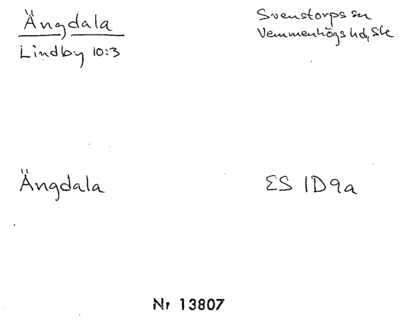 Ängdala
Lindby 10:3
Svenstorps sn
Vemmenhögs hd, Sk
Ängdala
ES 1D9a
Nr 13807